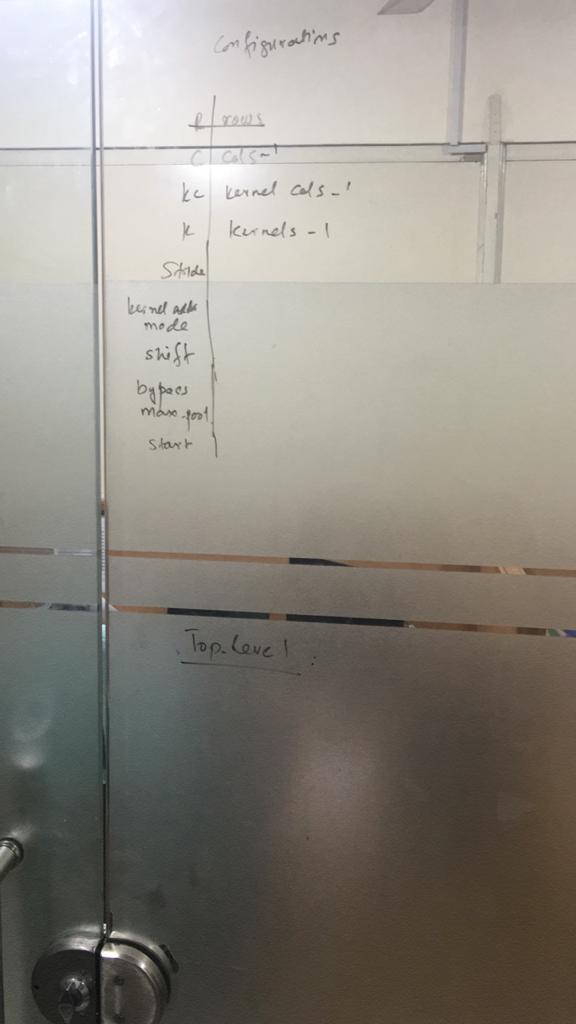 Configurations
R rows
C cols-1
kc kernel cols-1
k kernels -1
Stride
kernel addr
mode
shift
bypass
max-pool
start
Top-Level